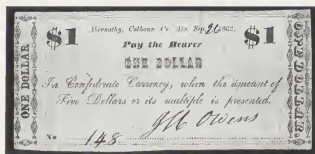 $1 Abernathy, Calhoun Co. Ala. Sep. 26 1862. $1
Pay the Bearer
ONE DOLLAR
In Confederate Currency, when the amount of
Five Dollars or its multiple is presented.
No 148. J H Owens
ONE DOLLAR
ONE DOLLAR